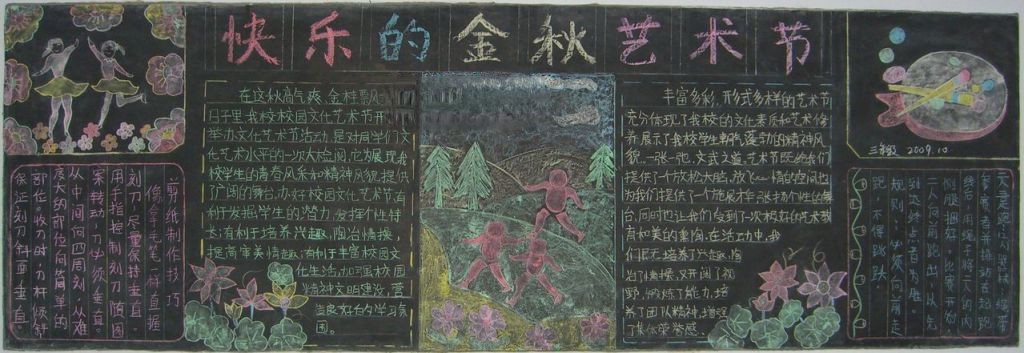 快乐的金秋艺术节
剪纸制作技巧
像拿毛笔一样直握
刻刀，尽量保持垂直，
用手指控制刻刀随图
案转动，刀必须垂直。
从中间向四周刻，从难
度大的部位向简单的
部位，收刀时，刀杆倾斜
保证刻刀斜面垂直。
在这秋高气爽、金桂飘
月子里,我校校园文化艺术节开
举办文化艺术节活动,是对同学们文
化艺术水平的一次大检阅,它为展现我
校学生的青春风采和精神风貌提供
了广阔的舞台,办好校园文化艺术节,有
利于发掘学生的潜力,发挥个性特
长;有利于培养兴趣,陶冶情操,
提高审美情趣;有利于丰富校园文
化生活,加强校园
精神文明建设,营
造良好的学习氛
围。
丰富多彩、形式多样的艺术节
充分体现了我校的文化素质和艺术修
养,展示了我校学生朝气蓬勃的精神风
貌。一张一弛,文武之道,艺术节既给我们
提供了个放松大脑、放飞心情的空间,也
为我们提供了一个施展才华、张扬个性的舞
台,同时也让我们受到了一次极好的艺术教
育和美的熏陶。在活动中,我
们既培养了兴趣,陶
冶了情操,又开阔了视
野,锻炼了能力,培
养了团队精神,增强
了集体荣誉感。
2009.10.
二人同向前跑出,以先
到达终点者为胜。
规则:必须向前走
跑,不得跳跃。